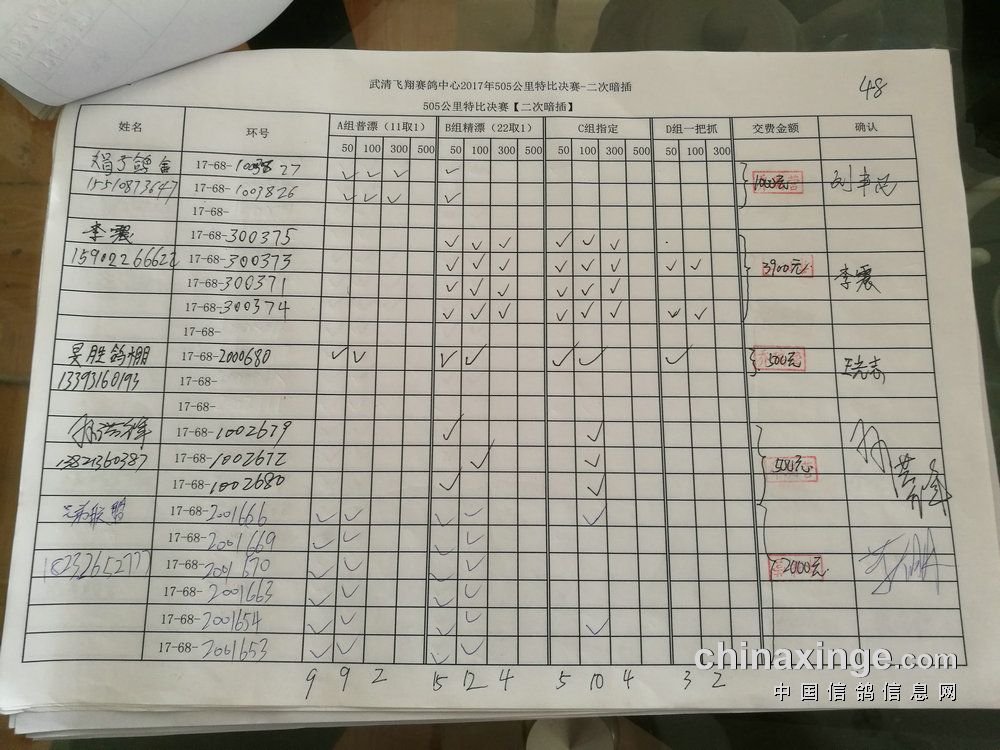 48
武清飞翔赛鸽中心2017年505公里特比决赛-二次暗插
505公里特比决赛【二次暗插】
姓名 环号 A组普漂（11取1） B组精漂（22取1） C组指定 D组一把抓 交费金额 确认
50 100 300 500 50 100 300 500 50 100 300 500 50 100 300
17-68- 27 ✓ ✓ ✓ ✓ 1000元
15510873647 17-68-1003826 ✓ ✓ ✓ ✓
17-68-
李震 17-68-300375 ✓ ✓ ✓ ✓ ✓ ✓
15902266622 17-68-300373 ✓ ✓ ✓ ✓ ✓ ✓ ✓ ✓ 3900元
17-68-300371 ✓ ✓ ✓ ✓ ✓ ✓ 李震
17-68-300374 ✓ ✓ ✓ ✓ ✓ ✓ ✓ ✓
17-68-
昊胜鸽棚 17-68-2000680 ✓ ✓ ✓ ✓ ✓ ✓ ✓ 500元
13393160193 17-68-
17-68-
17-68-1002679 ✓ ✓
13821360387 17-68-1002672 ✓ ✓ 500元
17-68-1002680 ✓ ✓
兄弟联盟 17-68-2001666 ✓ ✓ ✓ ✓ ✓
17-68-2001669 ✓ ✓ ✓ ✓
17-68-2001670 ✓ ✓ ✓ ✓ 2000元
17-68-2001663 ✓ ✓ ✓ ✓
17-68-2001654 ✓ ✓ ✓ ✓ ✓
17-68-2001653 ✓ ✓ ✓ ✓
9 9 2 15 12 4 5 10 4 3 2
chinaxinge.com
中国信鸽信息网